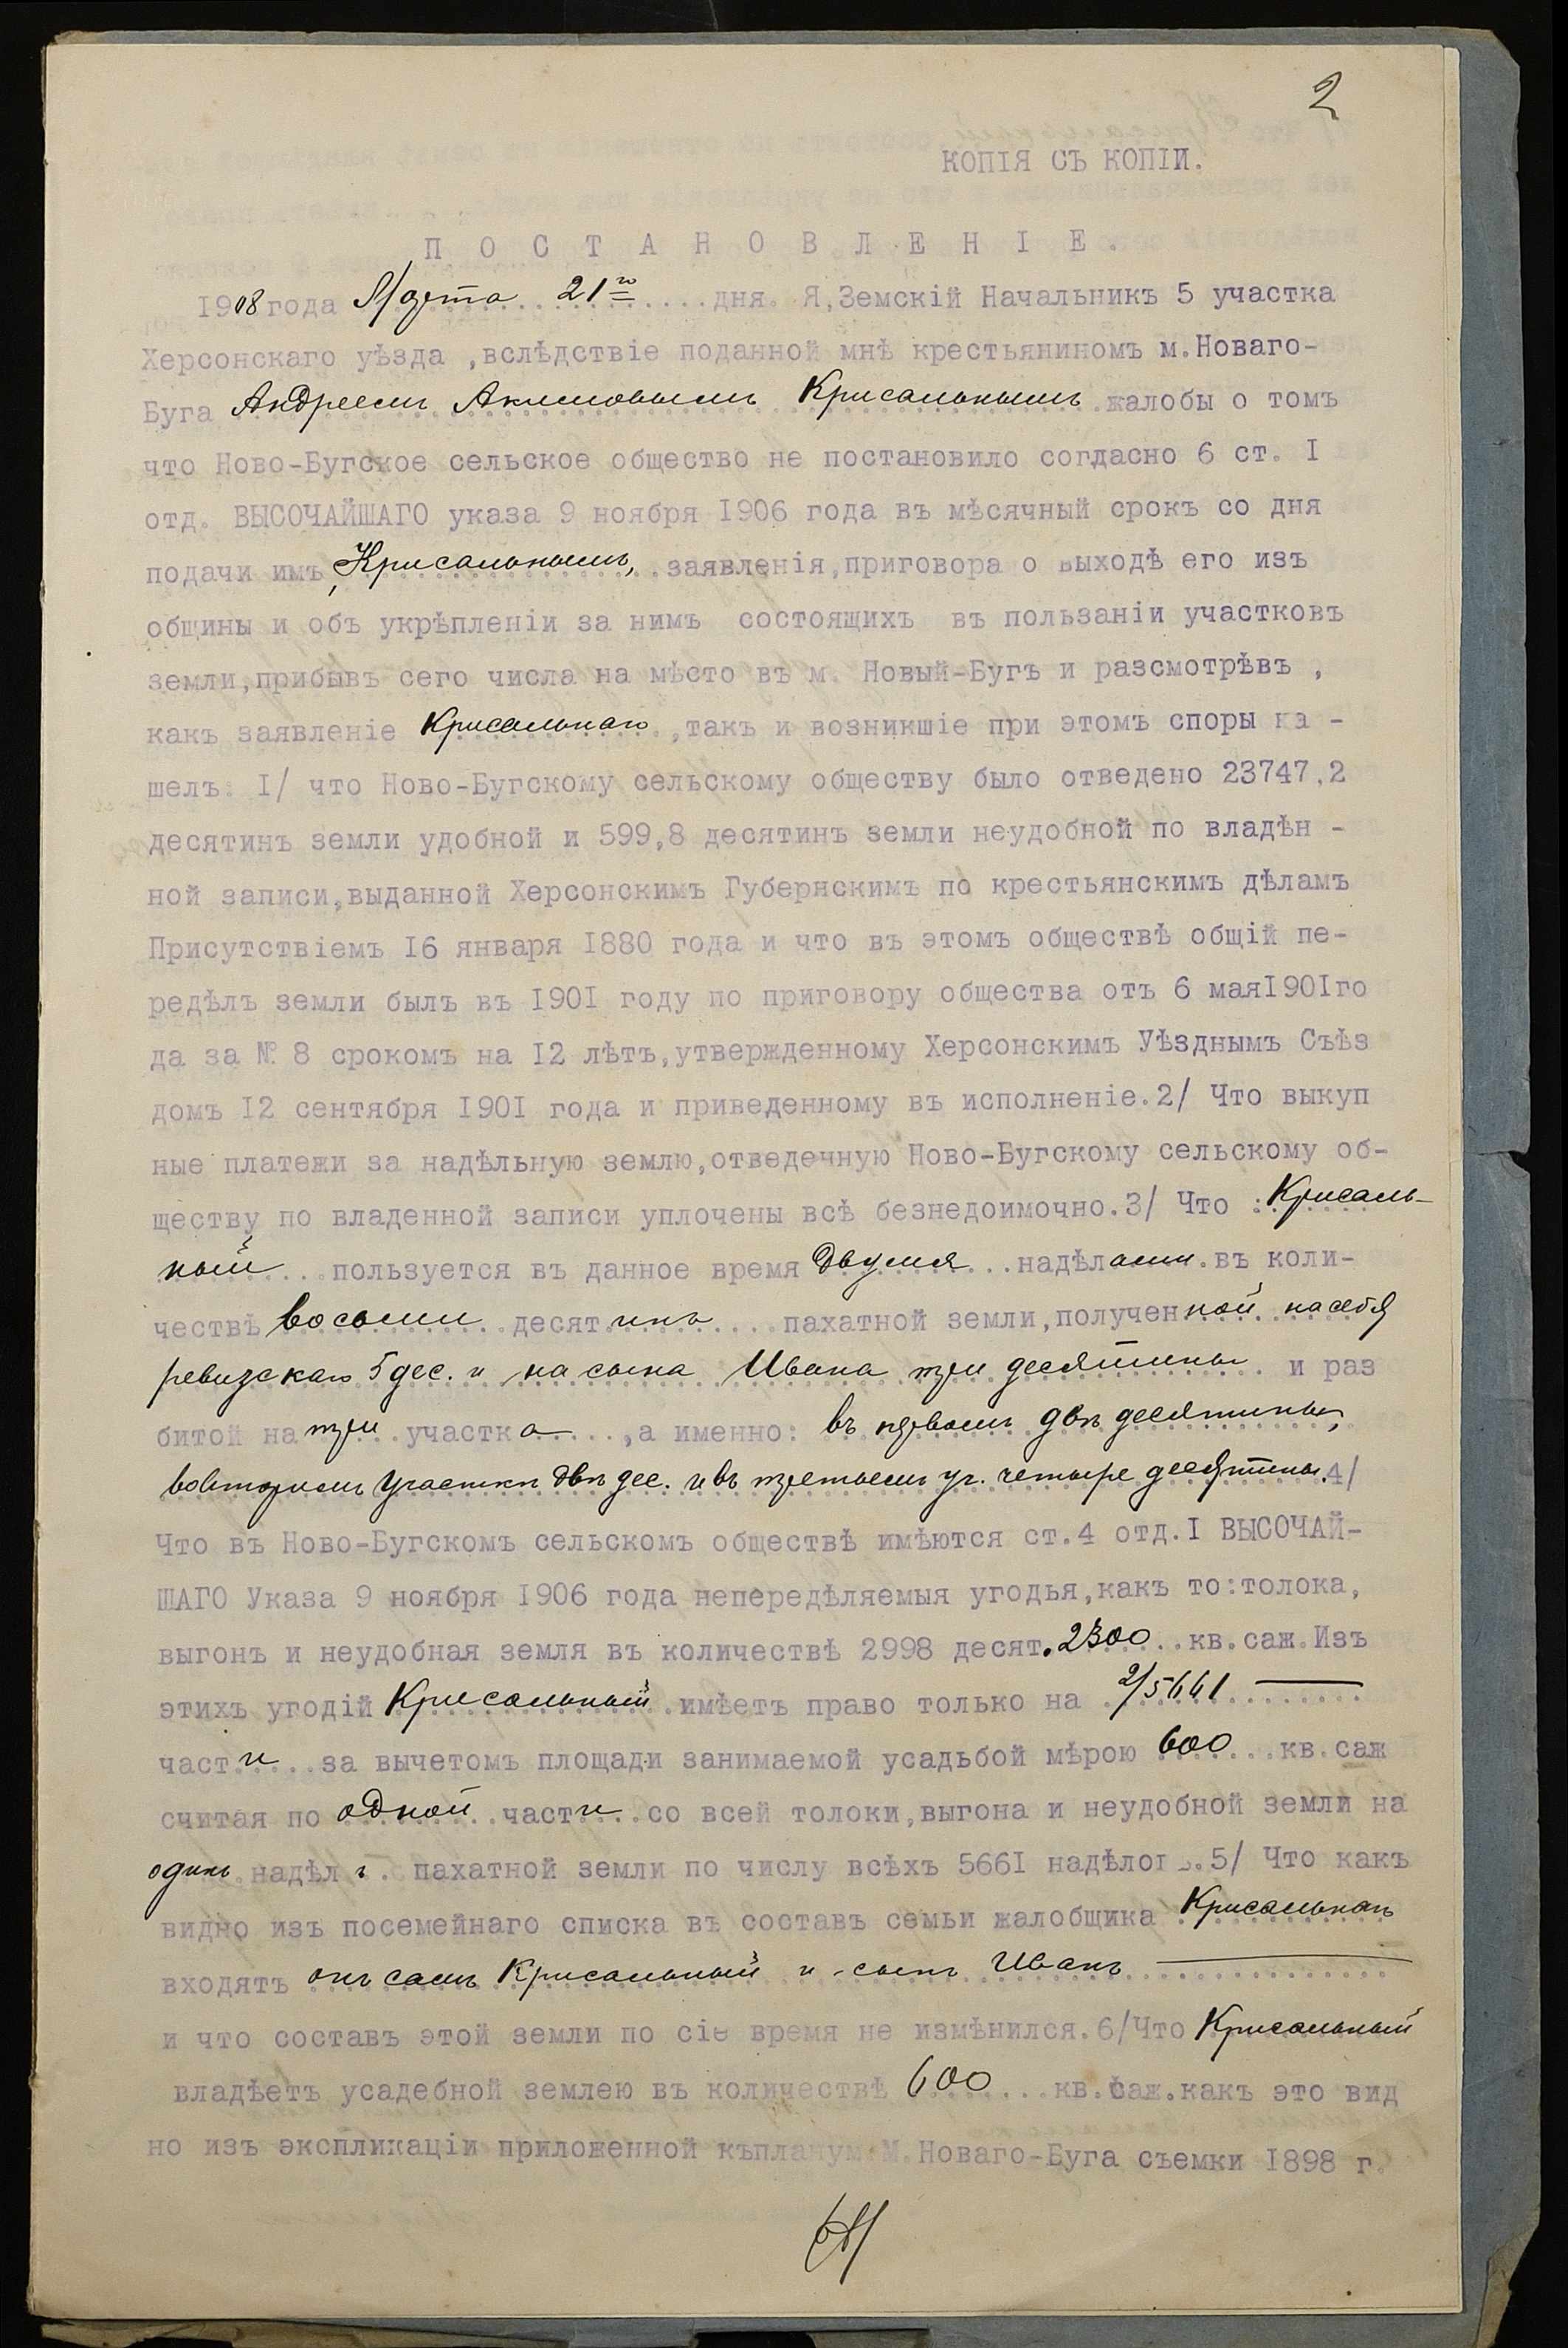 2
КОПІЯ СЪ КОПІИ.
ПОСТАНОВЛЕНІЕ.
1908 года Марта 21го дня. Я, Земскій Начальникъ 5 участка
Херсонскаго уѣзда ,вслѣдствіе поданной мнѣ крестьяниномъ м.Новаго-
Буга Андреемъ Акимовымъ Крисальнымъ жалобы о томъ
что Ново-Бугское сельское общество не постановило согласно 6 ст. I
отд. ВЫСОЧАЙШАГО указа 9 ноября 1906 года въ мѣсячный срокъ со дня
подачи имъ, Крисальнымъ, заявленія,приговора о выходѣ его изъ
общины и объ укрѣпленіи за нимъ состоящихъ въ пользаніи участковъ
земли,прибывъ сего числа на мѣсто въ м. Новый-Бугъ и разсмотрѣвъ ,
какъ заявленіе Крисальнаго ,такъ и возникшіе при этомъ споры на -
шелъ: I/ что Ново-Бугскому сельскому обществу было отведено 23747,2
десятинъ земли удобной и 599,8 десятинъ земли неудобной по владѣн -
ной записи,выданной Херсонскимъ Губернскимъ по крестьянскимъ дѣламъ
Присутствіемъ 16 января 1880 года и что въ этомъ обществѣ общій пе-
редѣлъ земли былъ въ 1901 году по приговору общества отъ 6 мая1901го
да за № 8 срокомъ на 12 лѣтъ,утвержденному Херсонскимъ Уѣзднымъ Съѣз
домъ 12 сентября 1901 года и приведенному въ исполненіе.2/ Что выкуп
ные платежи за надѣльную землю,отведечную Ново-Бугскому сельскому об-
ществу по владенной записи уплочены всѣ безнедоимочно.3/ Что : Крисаль-
ный пользуется въ данное время двумя надѣлами въ коли-
чествѣ восьми десятинъ пахатной земли,полученной на себя
ревизскаго 5 дес. и на сына Ивана три десятины и раз
битой на три участка ,а именно: въ первомъ двѣ десятины,
во второмъ участкѣ двѣ дес. и въ третьемъ уч. четыре десятины.4/
Что въ Ново-Бугскомъ сельскомъ обществѣ имѣются ст.4 отд.I ВЫСОЧАЙ-
ШАГО Указа 9 ноября 1906 года непередѣляемыя угодья,какъ то:толока,
выгонъ и неудобная земля въ количествѣ 2998 десят.2300 кв.саж.Изъ
этихъ угодій Крисальный имѣетъ право только на 2/5661
части за вычетомъ площади занимаемой усадьбой мѣрою 600 кв.саж
считая по одной части со всей толоки,выгона и неудобной земли на
одинъ надѣлъ пахатной земли по числу всѣхъ 5661 надѣловъ.5/ Что какъ
видно изъ посемейнаго списка въ составъ семьи жалобщика Крисальнаго
входятъ онъ самъ Крисальный и сынъ Иванъ
и что составъ этой земли по сіе время не измѣнился.6/Что Крисальный
владѣетъ усадебной землею въ количествѣ 600 кв.саж.какъ это вид
но изъ экспликаціи приложенной къпланум М.Новаго-Буга съемки 1898 г.